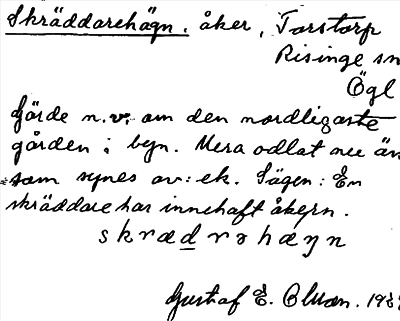 Skräddarehägn. åker, Torstorp
Risinge sn
Ögl
Gärde n.v. om den nordligaste
gården i byn. Mera odlat nu än
som synes av: ek. Sägen: En
skräddare har innehaft åkern.
skrædrəhæŋn
Gustaf E. Olsson.